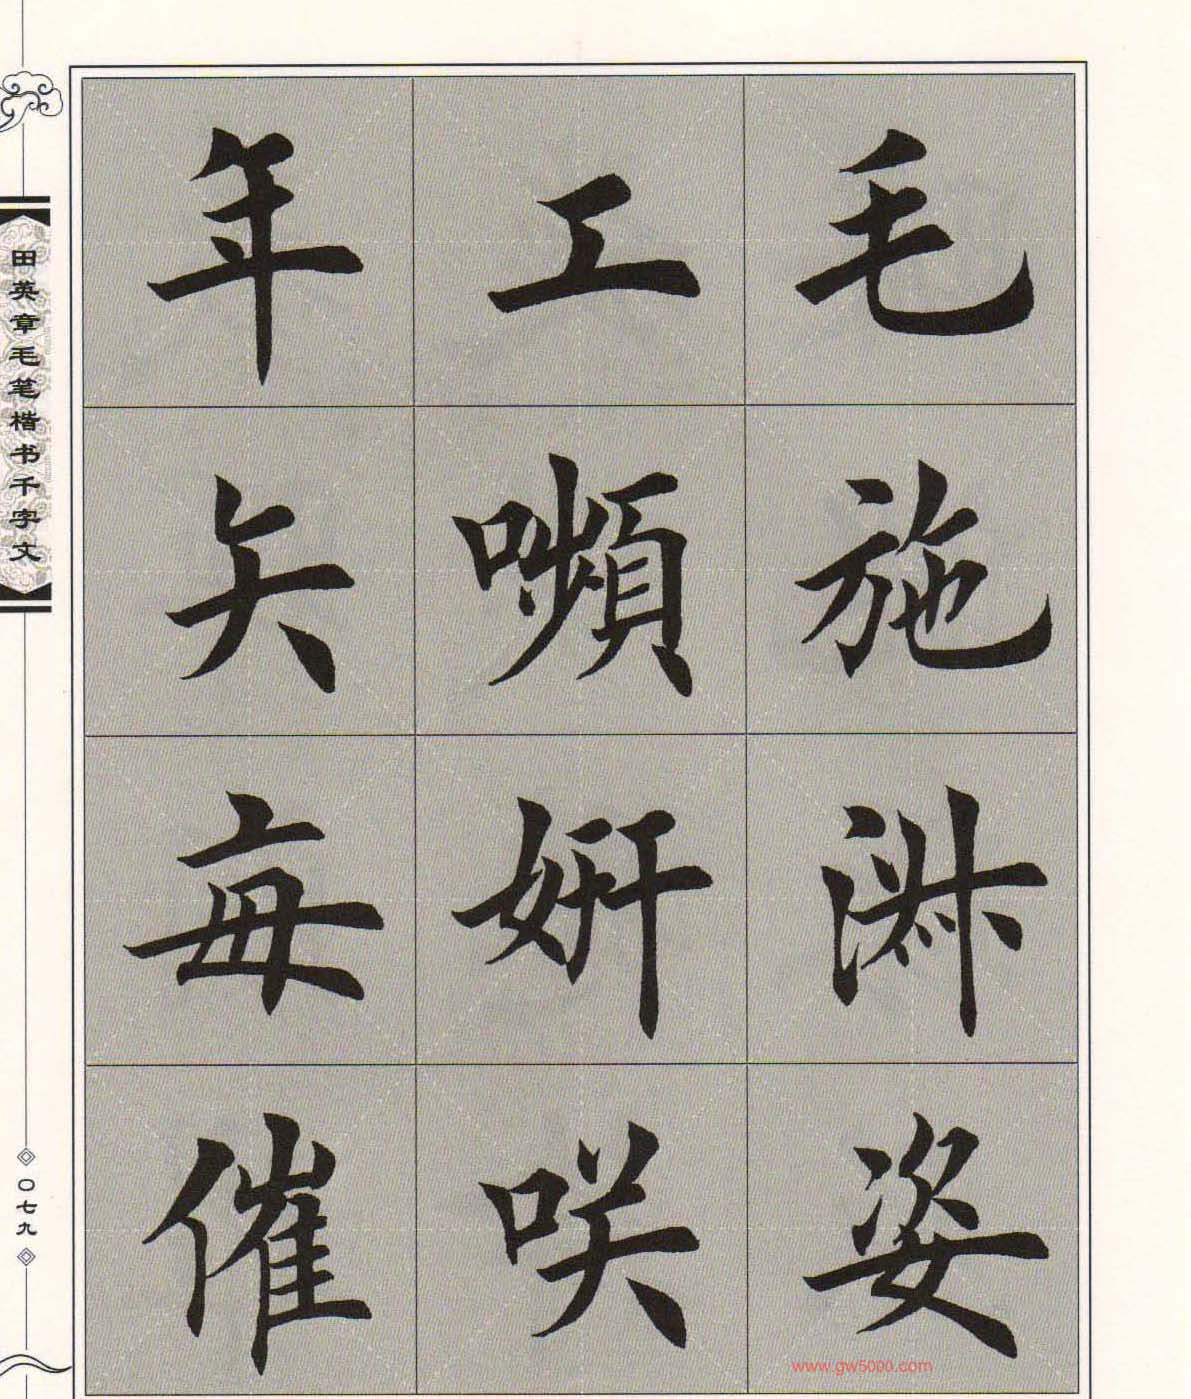 毛施淑姿
工嚬妍咲
年矢每催
田英章毛笔楷书千字文
〇七九
www.gw5000.com